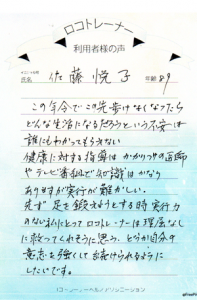 ロコトレーナー
利用者様の声
氏名 佐藤悦子 年齢 89
この年令でこの先歩けなくなったら
どんな生活になるだろうという不安は
誰にもわかってもらえない
健康に対する指導はかかりつけの医師
やテレビ番組で知識はかなり
ありますが実行が難かしい。
先ず足を鍛えようとする時実行力
のない私にとってロコトレーナーは理屈なし
に救ってくれそうに思う、どうか自分の
意志を強くして続けられるように
したいです。